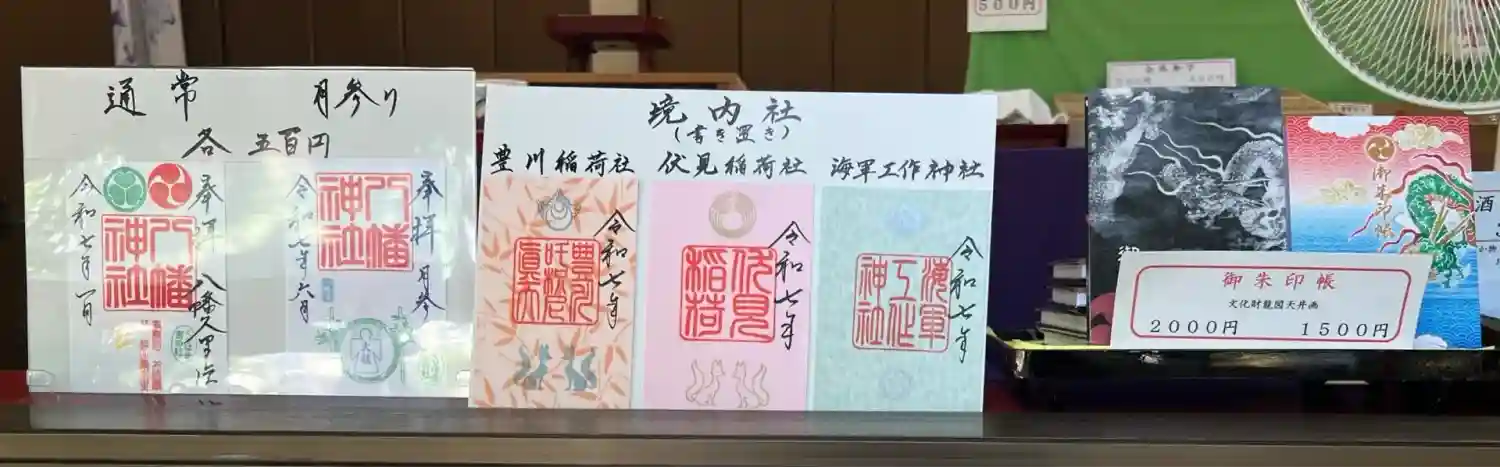 通常 月参り
各 五百円
奉拝
八幡神社
令和七年 一月
奉拝 月参
八幡神社
令和七年六月
境内社
(書き置き)
豊川稲荷社 伏見稲荷社 海軍工作神社
令和七年
伏見稲荷
令和七年
海軍工作神社
令和七年
500円
御朱印帳
御
御朱印帳
文化財龍図天井画
2000円 1500円
酒